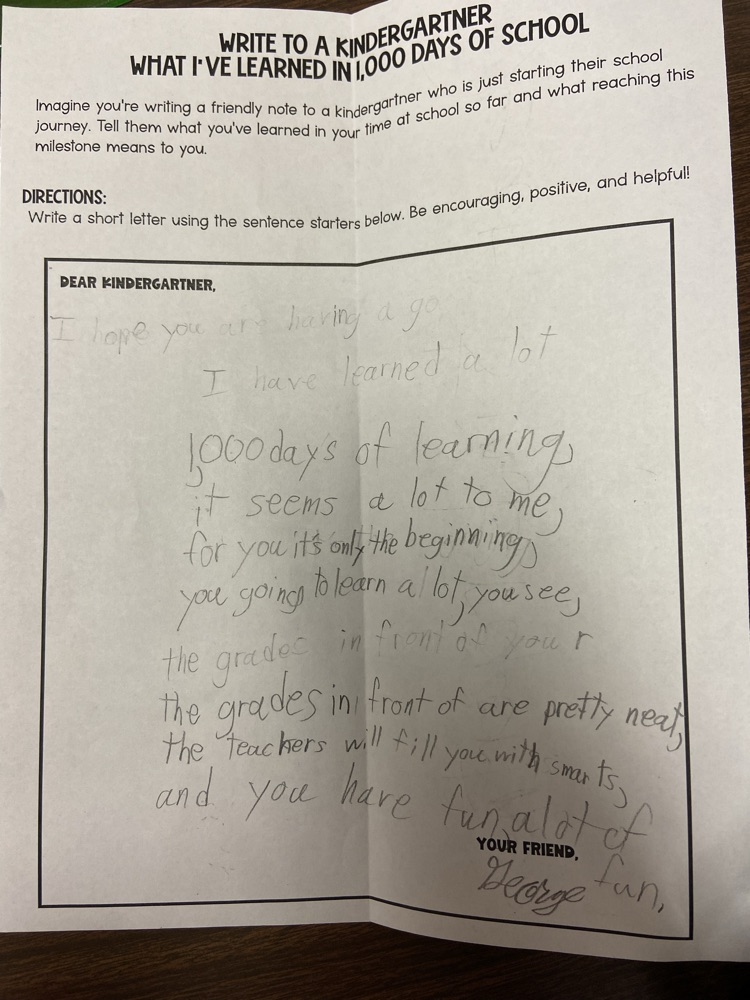 WRITE TO A KINDERGARTNER
WHAT I'VE LEARNED IN 1,000 DAYS OF SCHOOL
Imagine you're writing a friendly note to a kindergartner who is just starting their school
journey. Tell them what you've learned in your time at school so far and what reaching this
milestone means to you.
DIRECTIONS:
Write a short letter using the sentence starters below. Be encouraging, positive, and helpful!
DEAR KINDERGARTNER,
I hope you are having a go
I have learned a lot
1,000 days of learning,
it seems a lot to me,
for you it's only the beginning,
you going to learn a lot, you see,
the grades in front of your
the grades in front of are pretty neat,
the teachers will fill you with smarts,
and you have fun, a lot of
fun,
YOUR FRIEND,
George